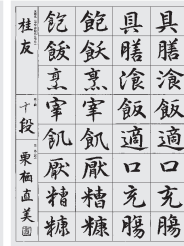 具膳湌飯適口充腸
具膳湌飯適口充腸
飽飫烹宰飢厭糟糠
飽飫烹宰飢厭糟糠
桂友 十段 栗栖直美